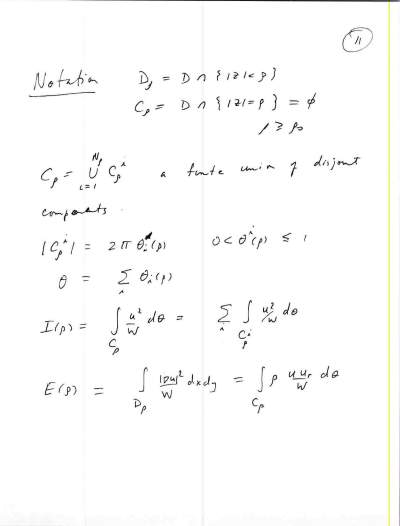 11
Notation D_ρ = D ∩ {|z|<ρ}
C_ρ = D ∩ {|z|=ρ} = ϕ
ρ ≥ ρ₀
C_ρ = ∪_{i=1}^{N_ρ} C_ρ^i a finite union of disjoint
components.
|C_ρ^i| = 2π θ_i(ρ) 0 < θ^i(ρ) ≤ 1
θ = Σ_i θ_i(ρ)
I(ρ) = ∫_{C_ρ} u²/W dθ = Σ_i ∫_{C_ρ^i} u²/W dθ
E(ρ) = ∫_{D_ρ} |Du|²/W dxdy = ∫_{C_ρ} ρ u u_r/W dθ